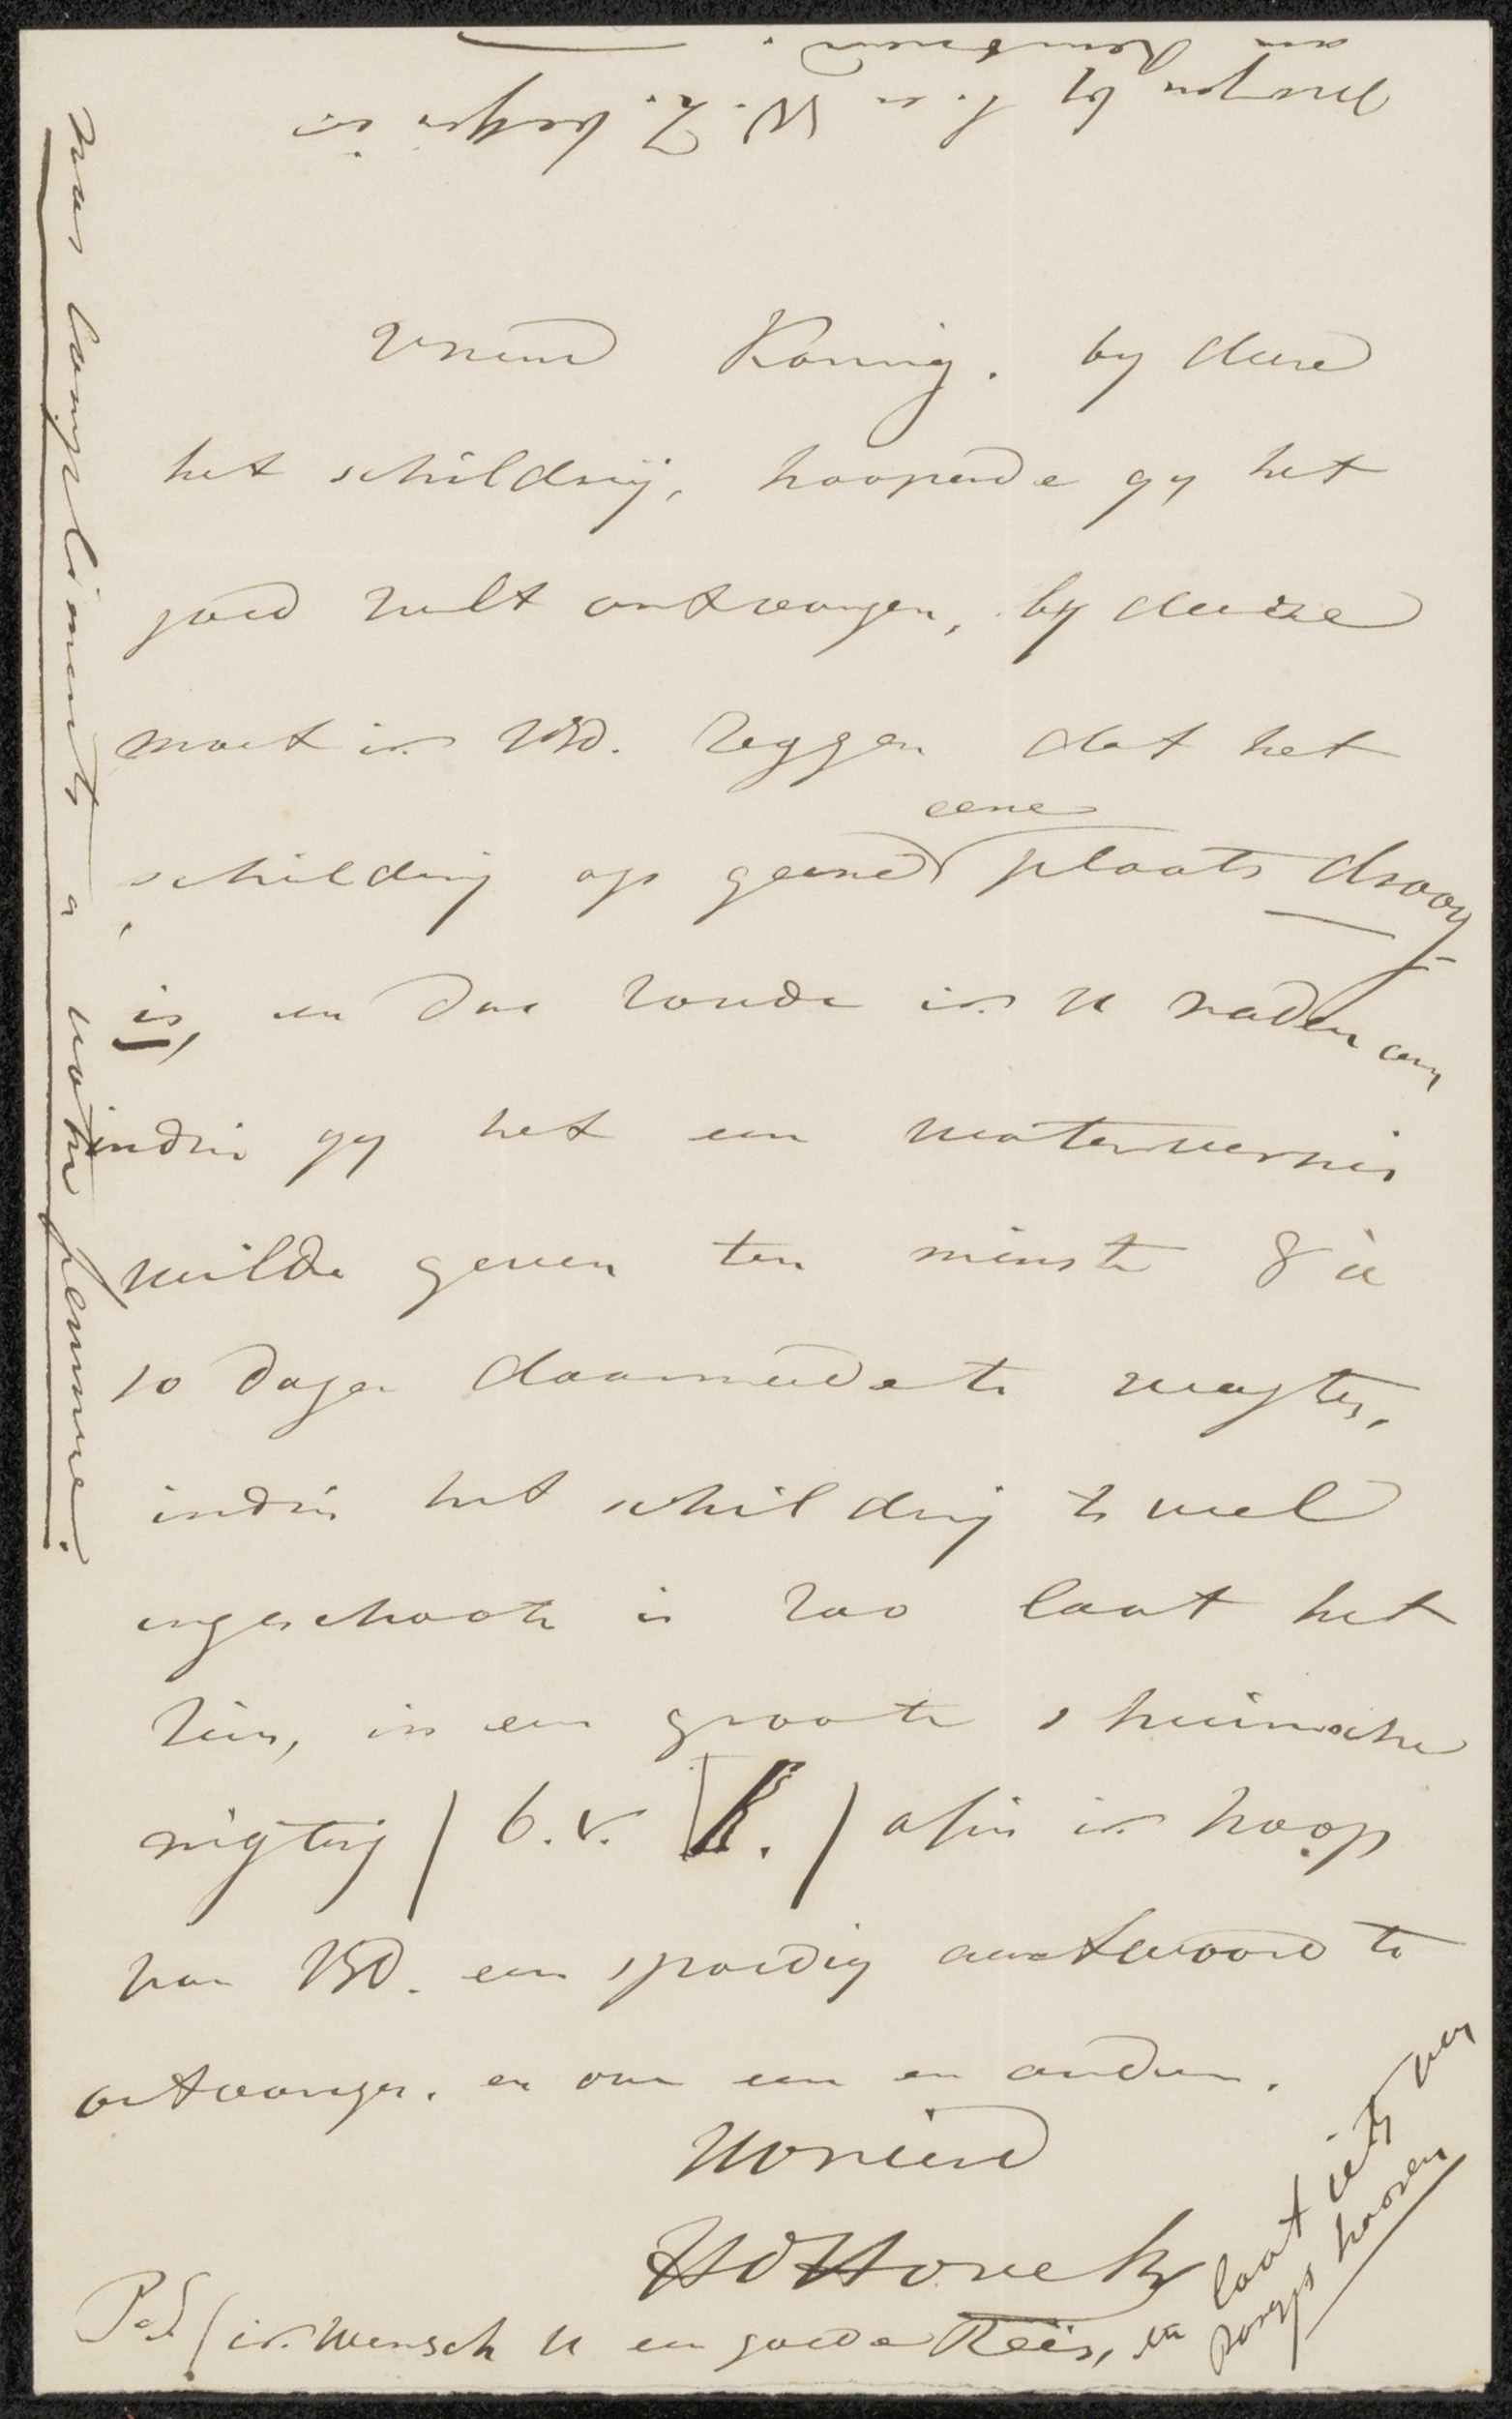 Vriend Koning. by deese
het schildrij, hoopende gy het
goed zult ontvangen, by deeze
moet ik UEd. zeggen dat het
schildrij op geene eene plaats droog
is, en dus zoude ik u raden om
indien gy het een watervernis
wilde geven ten minste 8 à
10 dagen daarmede te wagten,
indien het schildrij te veel
ingeschooten is zoo laat het
zien, in een groote schuinsche
rigting / b.v. / afin ik hoop
van UEd. een spoedig antwoord te
ontvangen. en over een en ander.
Uvriend
PS / ik wensch u een goede Reis, en laat iets van
Parijs hooren
mes compliments a votre femme.
morgen by L. en W. Z. ik